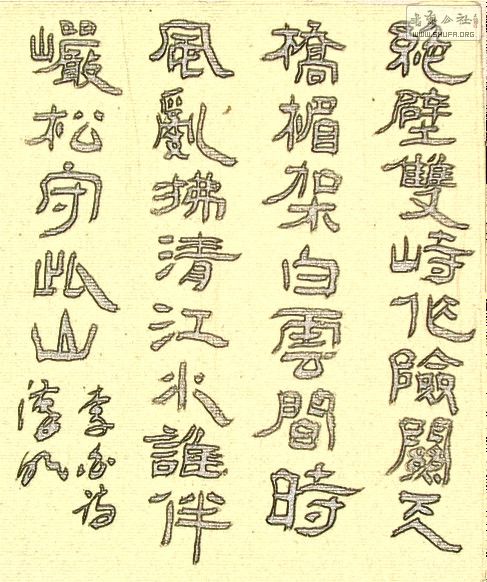 絶壁雙峙作險關天
橋楣架白雲間時
風亂拂清江水誰伴
巖松守此山
李
公社
WWW.SHUFA.ORG